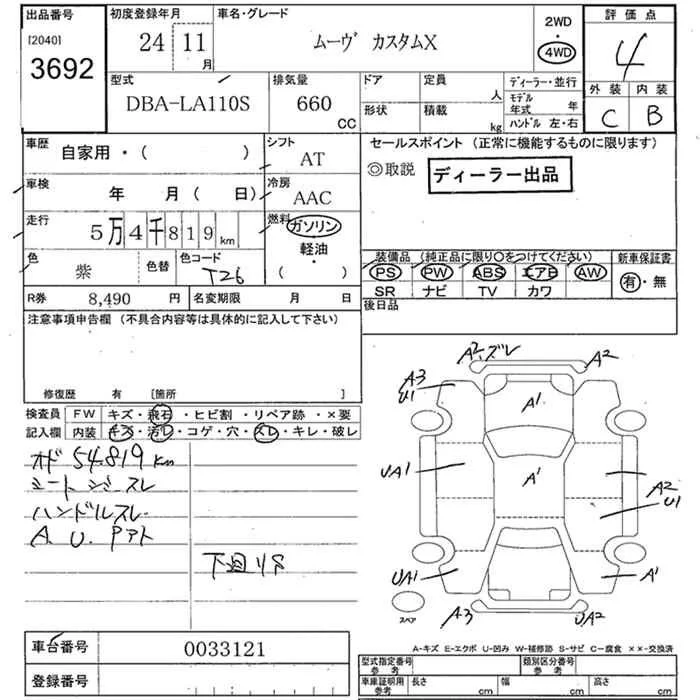 出品番号 初度登録年月 車名・グレード 2WD 評価点
[2040] 24 11 月 ムーヴ カスタムX ・ 4WD 4
3692
型式 排気量 ドア 定員 人 ディーラー・並行 外装 内装
DBA-LA110S 660 CC 形状 積載 kg モデル年式 年 C B
ハンドル 左・右
車歴 自家用・( ) シフト AT セールスポイント (正常に機能するものに限ります)
◎取説 ディーラー出品
車検 年 月 ( 日) 冷房 AAC
走行 5万4千819km 燃料 ガソリン
軽油・
( )
色 紫 色替 色コード T26 装備品 (純正品に限り○をつけてください) 新車保証書
PS PW ABS エアB AW 有・無
SR ナビ TV カワ
R券 8,490 円 名変期限 月 日 後日品
注意事項申告欄 (不具合内容等は具体的に記入して下さい)
修復歴 有 [箇所 ]
検査員 FW キズ・飛石・ヒビ割・リペア跡・×要
記入欄 内装 キズ・汚レ・コゲ・穴・スレ・キレ・破レ
オド 54.819 km
シート シミ スレ
ハンドルスレ
A. U. Pアト
下廻リサ
A2.ズレ A2
A3 U1 A1
UA1 A1 A2 U1
UA1 A1
A3 UA2
スペア
A-キズ E-エクボ U-凹み W-補修跡 S-サビ C-腐食 ××-交換済
車台番号 0033121
登録番号
型式指定番号 参考 類別区分番号 参考
車庫証明用 参考 長さ cm 幅 cm 高さ cm